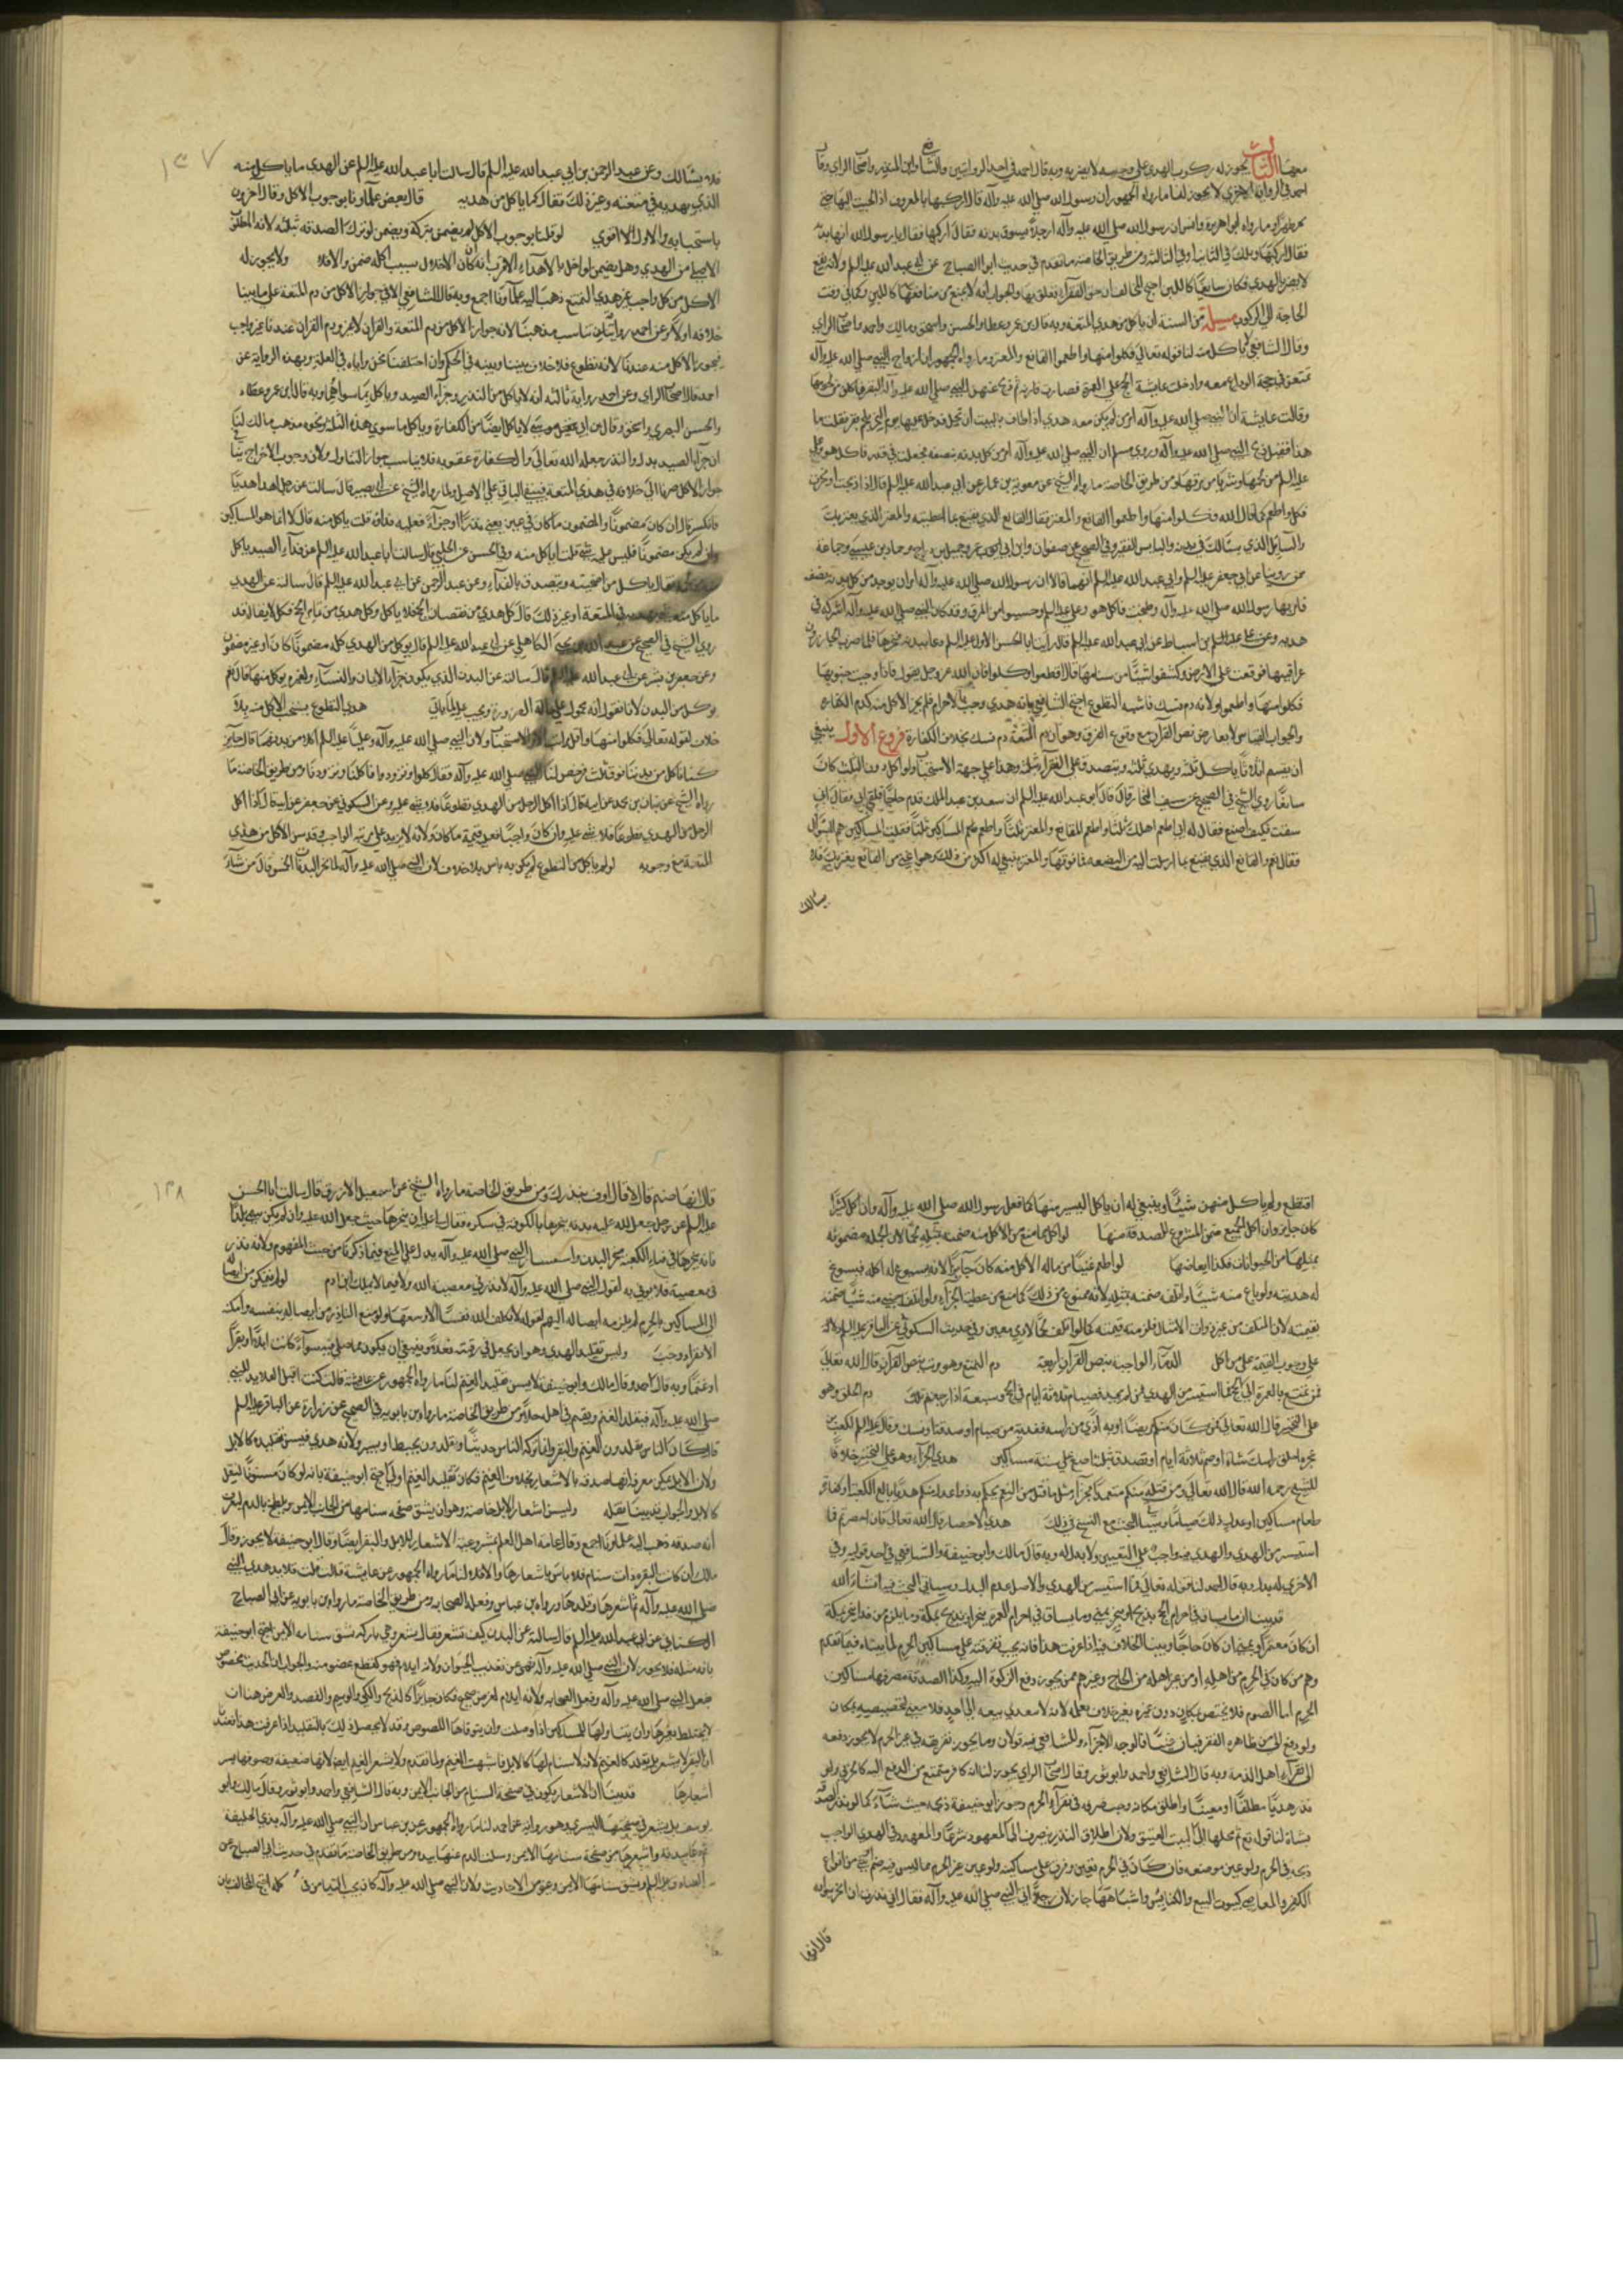 معها الثالث يجوز له ركوب الهدي على وجه لا يضر به وبه قال احمد في احد الروايتين والشافعي وابن المنذر واصحاب الراي وقال
احمد في الرواية الاخرى لا يجوز لنا ما رواه الجمهور ان رسول الله صلى الله عليه وآله قال اركبها بالمعروف اذا الجئت اليها حتى
تجد ظهرا وما رواه ابو هريرة وانس ان رسول الله صلى الله عليه وآله راى رجلا يسوق بدنه فقال اركبها فقال يا رسول الله انها بدنة
فقال اركبها ويلك في الثانية او في الثالثة ومن طريق الخاصة ما تقدم في حديث ابي الصباح عن ابي عبد الله عليه السلم ولانه ينتفع
لا يضر بالهدي فكان سايغا كاللبن احتج المخالف بان حق الفقراء تعلق بها والجواب انه لا يمنع من منافعها كاللبن وكما في وقت
الحاجة الى الركوب مسئلة من السنة ان ياكل من هدي المتعة وبه قال ابن عمر وعطا والحسن واسحق ومالك واحمد واصحاب الراي
وقال الشافعي لا ياكل منه لنا قوله تعالى فكلوا منها واطعموا القانع والمعتر وما رواه الجمهور ان ازواج النبي صلى الله عليه وآله
تمتعن في حجة الوداع معه وادخلت عايشة الحج على العمرة فصارت قارنه ثم ذبح عنهن النبي صلى الله عليه وآله البقر فاكلن من لحومها
وقالت عايشة ان النبي صلى الله عليه وآله امر من لم يكن معه هدي اذا طاف بالبيت ان يحل فدخل علينا يوم النحر بلحم بقر فقلت ما
هذا فقيل ذبح النبي صلى الله عليه وآله وروى مسلم ان النبي صلى الله عليه وآله امر من كل بدنه ببضعه فجعلت في قدر فاكل هو وعلي
عليه السلم من لحمها وشربا من مرقها ومن طريق الخاصة ما رواه الشيخ عن معوية بن عمار عن ابي عبد الله عليه السلم قال اذا ذبحت او نحرت
فكل واطعم كما قال الله فكلوا منها واطعموا القانع والمعتر فقال القانع الذي يقنع بما اعطيته والمعتر الذي يعتريك
والسايل الذي يسالك في يديه والبايس الفقير وفي الصحيح عن صفوان وابن ابي عمير عن جميل بن دراج وحماد بن عيسى وجماعة
ممن روينا عن ابي جعفر عليه السلم وابي عبد الله عليه السلم انهما قالا ان رسول الله صلى الله عليه وآله امر ان يوخذ من كل بدنة بضعة
فامر بها رسول الله صلى الله عليه وآله وطبخت فاكل هو وعلي عليه السلم وحسيا من المرق وقد كان النبي صلى الله عليه وآله اشركه في
هديه وعن علي بن اسباط عن ابي عبد الله عليه السلم قال رايت ابا الحسن الاول عليه السلم دعا ببدنه فنحرها فلما ضرب الجزارون
عراقيبها فوقعت على الارض وكشفوا شيئا من سنامها قال اقطعوا وكلوا فان الله عز وجل يقول فاذا وجبت جنوبها
فكلوا منها واطعموا ولانه دم نسك فاشبه التطوع احتج الشافعي بانه هدي وجب بالاحرام فلم يجز الاكل منه كدم الكفارة
والجواب القياس لا يعارض نص القرآن مع وقوع الفرق وهو ان دم المتعة دم نسك بخلاف الكفارة فروع الاول ينبغي
ان يقسم اثلاثا ياكل ثلثه ويهدي ثلثه ويتصدق على الفقراء بثلثه وهذا على جهة الاستحباب ولو اكل دون الثلث كان
سايغا روى الشيخ في الصحيح عن سيف التمار قال قال ابو عبد الله عليه السلم ان سعد بن عبد الملك قدم حاجا فلقي ابي فقال اني
سقت هديا فكيف اصنع فقال له ابي اطعم اهلك ثلثا واطعم القانع والمعتر ثلثا واطعم المساكين ثلثا فقلت المساكين هم السؤال
فقال نعم والقانع الذي يقنع بما ارسلت اليه من البضعة فما فوقها والمعتر ينبغي له اكثر من ذلك وهو اغنى من القانع يعتريك فلا
يسالك
فلا يسالك وعن عبد الرحمن بن ابي عبد الله عليه السلم قال سالت ابا عبد الله عليه السلم عن الهدي ما ياكل منه
الذي يهديه في متعته وغير ذلك فقال كما ياكل من هديه قال بعض علمآونا بوجوب الاكل وقال اخرون
باستحبابه والاول الاقوى لو قلنا بوجوب الاكل لم يضمن بتركه ويضمن لو ترك الصدقة بثلثه لانه المطلق
١٣٧
الاكل من كل واجب غير هدي التمتع ذهب اليه علمآونا اجمع وبه قال الشافعي الا في جواز الاكل من دم المتعة على ما بينا
فيجوز الاكل منه عندنا لانه تطوع فلا خلاف بيننا وبينه في الحكم وان اختلفنا نحن واياه في العلة وبهذه الرواية عن
احمد قال اصحاب الراي وعن احمد رواية ثالثة انه لا ياكل من النذر وجزاء الصيد وياكل مما سواهما وبه قال ابن عمر وعطاء
والحسن البصري واسحق وقال ابن ابي موسى لا ياكل ايضا من الكفارة وياكل ما سوى هذه الثلثة ونحوه مذهب مالك لنا
ان جزاء الصيد بدل والنذر جعله الله تعالى والكفارة عقوبة فلا يناسب جواز التناول ولان وجوب الاخراج ينافي
جواز الاكل صرنا الى خلافه في هدي المتعة فيبقى الباقي على الاصل ولما رواه الشيخ عن ابي بصير قال سالت عن رجل اهدى هديا
فانكسر قال ان كان مضمونا والمضمون ما كان في يمين يعني نذرا او جزاء فعليه فداؤه قلت ياكل منه قال لا انما هو للمساكين
وان لم يكن مضمونا فليس عليه شيء قلت ياكل منه وفي الحسن عن الحلبي قال سالت ابا عبد الله عليه السلم عن فداء الصيد ياكل
فقال ياكل من اضحيته ويتصدق بالفداء وعن عبد الرحمن عن ابي عبد الله عليه السلم قال سالته عن الهدي
ما ياكل منه في المتعة او غير ذلك قال كل هدي من نقصان الحج فلا ياكل وكل هدي من تمام الحج فكل لا يقال قد
روى الشيخ في الصحيح عن عبد الله بن يحيى الكاهلي عن ابي عبد الله عليه السلم قال يوكل من الهدي كله مضمونا كان او غير مضمون
وعن جعفر بن بشير عن ابي عبد الله عليه السلم قال سالته عن البدن الذي يكون جزاء الايمان والنساء ولغيره يوكل منها قال نعم
يوكل من البدن لانا نقول انه محمول على حالة الضرورة هدي التطوع يستحب الاكل منه بلا
خلاف لقوله تعالى فكلوا منها واقل مراتب الامر الاستحباب ولان النبي صلى الله عليه وآله وعليا عليه السلم اكلا من بدنهما قال جابر
كنا لا ناكل من بدننا فوق ثلث فرخص لنا النبي صلى الله عليه وآله فقال كلوا وتزودوا فاكلنا وتزودنا ومن طريق الخاصة ما
الرجل من الهدي تطوعا فلا شيء عليه وان كان واجبا فعليه قيمة ما اكل ولانه لا يزيد على مرتبة الواجب وقد سن الاكل من هدي
المتعة مع وجوبه لو لم ياكل من التطوع لم يكن به باس بلا خلاف لان النبي صلى الله عليه وآله لما نحر البدنات الخمس قال من شاء
اقتطع ولم ياكل منهن شيئا وينبغي له ان ياكل اليسير منها كما فعل رسول الله صلى الله عليه وآله وان اكل كثيرا
كان جايزا وان اكل الجميع ضمن المشروع للصدقة منها لو اكل ما منع من الاكل منه ضمنه بمثله لحما لان الجملة مضمونه
بمثلها من الحيوانات فكذا ابعاضها لو اطعم غنيا من ماله الاكل منه كان جايزا لانه يسوغ له اكله فيسوغ
له هديته ولو باع منه شيئا او اتلفه ضمنه بمثله لانه ممنوع من ذلك
على وجوب القيمة على من اكل الدماء الواجبة بنص القرآن اربعة دم التمتع وهو مرتب بنص القرآن قال الله تعالى
فمن تمتع بالعمرة الى الحج فما استيسر من الهدي فمن لم يجد فصيام ثلاثة ايام في الحج وسبعة اذا رجعتم دم الحلق وهو
على التخيير قال الله تعالى فمن كان منكم مريضا او به اذى من راسه ففدية من صيام او صدقة او نسك وقال عليه السلم لكعب بن
عجره احلق راسك شاة او صم ثلاثة ايام او تصدق بثلثة اصوع على ستة مساكين هدي الجزاء وهو على التخيير خلافا
للشيخ رحمه الله قال الله تعالى ومن قتله منكم متعمدا فجزاء مثل ما قتل من النعم يحكم به ذوا عدل منكم هديا بالغ الكعبة او كفارة
طعام مساكين او عدل ذلك صياما وسياتي البحث مع الشيخ في ذلك هدي الاحصار قال الله تعالى فان احصرتم فما
استيسر من الهدي والهدي فيه واجب على التعيين ولا بدل له وبه قال مالك وابو حنيفة والشافعي في احد قوليه وفي
الاخرى له بدل وبه قال احمد لنا قوله تعالى فما استيسر من الهدي والاصل عدم البدل وسياتي البحث فيه انشاء الله
قد بينا ان ما يساق في احرام الحج يذبح او ينحر بمنى وما يساق في احرام العمرة ينحر او يذبح بمكة وما يلزم من فداء ينحر بمكة
ان كان معتمرا وبمنى ان كان حاجا وبينا الخلاف فيه اذا عرفت هذا فانه يجب تفرقته على مساكين الحرم لما بيناه فيما تقدم
وهم من كان في الحرم من اهله او من غير اهله من الحاج وغيرهم ممن يجوز دفع الزكوة اليه وكذا الصدقة مصرفها مساكين
الحرم اما الصوم فلا يختص بمكان دون غيره بغير خلاف نعلمه لانه لا يتعدى نفعه الى احد فلا معنى لتخصيصه بمكان
ولو دفع الى من ظاهره الفقر فبان غنيا فالوجه الاجزاء وللشافعي فيه قولان وما يجوز تفريقه في غير الحرم لا يجوز دفعه
الى فقراء اهل الذمة وبه قال الشافعي واحمد وابو ثور وقال اصحاب الراي يجوز لنا انه كافر فيمنع من الدفع اليه كالحربي ولو
نذر هديا مطلقا او معينا واطلق مكانه وجب صرفه في فقراء الحرم وجوز ابو حنيفة ذبحه حيث شاء كما لو نذر الصدقة
بشاة لنا قوله تع ثم محلها الى البيت العتيق ولان اطلاق النذر ينصرف الى المعهود شرعا والمعهود في الهدي الواجب
ذبحه في الحرم ولو عين موضعه فان كان في الحرم تعين وفرق على مساكينه ولو عين غير الحرم مما ليس فيه صنم او شيء من انواع
الكفر والمعاصي كبيوت البيع والكنايس واشباهها جاز لان رجلا اتى النبي صلى الله عليه وآله فقال اني نذرت ان انحر ببوانه
قال ابها
قال ابها صنم قال لا قال اوف بنذرك ومن طريق الخاصة ما رواه الشيخ عن اسحق الازرق قال سالت ابا الحسن
عليه السلم عن رجل جعل لله عليه بدنه ينحرها بالكوفة في شكر فقال لي عليه ان ينحرها حيث جعل الله عليه وان لم يكن سمى بلدا
فانه ينحرها في فناء الكعبة منحر البدن
١٣٨
في معصية فلا يوفى به لقول النبي صلى الله عليه وآله لا نذر في معصية الله ولا فيما لا يملك ابن ادم لو لم يتمكن من ايصاله
الى المساكين بالحرم لم يلزمه ايصاله اليهم لقوله لا يكلف الله نفسا الا وسعها ولو منع الناذر من ايصاله بنفسه وامكنه
الانفاذ وجب وليس تقليد الهدي وهو ان يجعل في رقبته نعلا وينبغي ان يكون مما صلى فيه سواء كانت ابلا او بقرا
او غنما وبه قال احمد وقال مالك وابو حنيفة لا يسن تقليد الغنم لنا ما رواه الجمهور عن عايشة قالت كنت افتل القلايد للنبي
صلى الله عليه وآله فيقلد الغنم ويقيم في اهله حلالا ومن طريق الخاصة ما رواه ابن بابويه في الصحيح عن زرارة عن الباقر عليه السلم
قال كان الناس يقلدون الغنم والبقر وانما تركه الناس حديثا ويقلدون بخيط او بسير ولانه هدي فيسن تقليده كالابل
ولان الابل يمكن معرفة انها صدقة بالاشعار بخلاف الغنم فكان تقليد الغنم اولى احتج ابو حنيفة بانه لو كان مسنونا لنقل
كالابل والجواب قد بينا نقله وليس اشعار الابل خاصة وهو ان يشق صفحة سنامها من الجانب الايمن ويلطخ بالدم ليعرف
انه صدقه ذهب اليه علمآونا اجمع وقال عامة اهل العلم بمشروعية الاشعار للابل والبقر ايضا وقال ابو حنيفة لا يجوز وقال
مالك ان كانت البقرة ذات سنام فلا باس باشعارها والا فلا لنا ما رواه الجمهور عن عايشة قالت فتلت قلايد هدي النبي
صلى الله عليه وآله ثم اشعرها وقلدها ورواه ابن عباس وفعله الصحابه ومن طريق الخاصة ما رواه ابن بابويه عن ابي الصباح
الكناني عن ابي عبد الله عليه السلم قال سالته عن البدن كيف تشعر فقال تشعر وهي باركه يشق سنامه الايمن احتج ابو حنيفة
بانه مثله فلا يجوز لان النبي صلى الله عليه وآله نهى عن تعذيب الحيوان ولانه ايلام فهو كقطع عضو منه والجواب ان الحديث مخصوص
بفعل النبي صلى الله عليه وآله وفعل الصحابه ولانه ايلام لغرض صحيح فكان جايزا كالذبح والكي والوسم والفصد والغرض هنا ان
لا يختلط بغيرها وان يتناولها المساكين اذا وصلت وان يتوقاها اللصوص وقد لا يحصل ذلك بالتقليد اذا عرفت هذا فعندنا
ان البقر لا يشعر بل يقلد كالغنم لانه لا سنام لها كالابل فاشبهت الغنم ولما تقدم ولا يشعر الغنم ايضا لانها ضعيفه وصوفها يستر
اشعارها قد بينا ان الاشعار يكون في صفحة السنام من الجانب الايمن وبه قال الشافعي واحمد وابو ثور وقال مالك وابو
يوسف بل يشعر في صفحتها اليسرى وهو رواية عن احمد لنا ما رواه الجمهور عن ابن عباس ان النبي صلى الله عليه وآله بذي الحليفة
ثم دعا ببدنة واشعرها من صفحة سنامها الايمن وسلت الدم عنها بيده ومن طريق الخاصة ما تقدم في حديث ابي الصباح عن
الصادق عليه السلم ويشق سنامها الايمن وغيره من الاحاديث ولان النبي صلى الله عليه وآله كان يحب التيامن في كله احتج المخالف بان